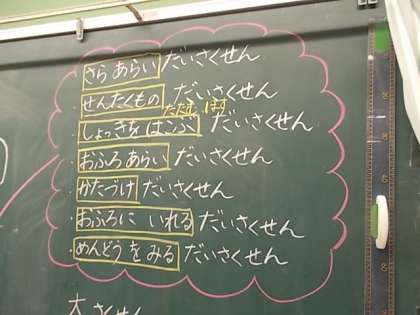 さらあらい だいさくせん
・せんたくもの だいさくせん
たたむ ほす
・しょっきをはこぶ だいさくせん
・おふろあらい だいさくせん
・かたづけ だいさくせん
・おふろに いれる だいさくせん
・めんどうをみる だいさくせん
大さくせん